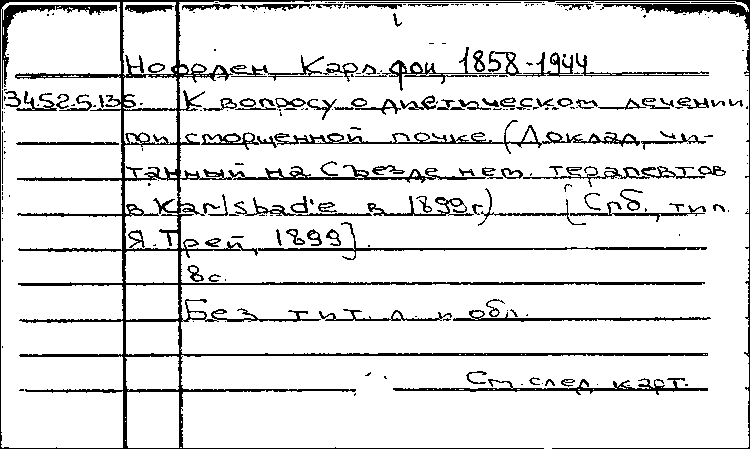 1
Ноорден, Карл фон, 1858-1944
34.52.5.136. К вопросу о диетическом лечении
при сморщенной почке. (Доклад, чи-
танный на Съезде нем. терапевтов
в Karlsbad'е в 1899 г.) [Спб., тип.
Я. Трей, 1899].
8 с.
Без тит. л. и обл.
См. след. карт.